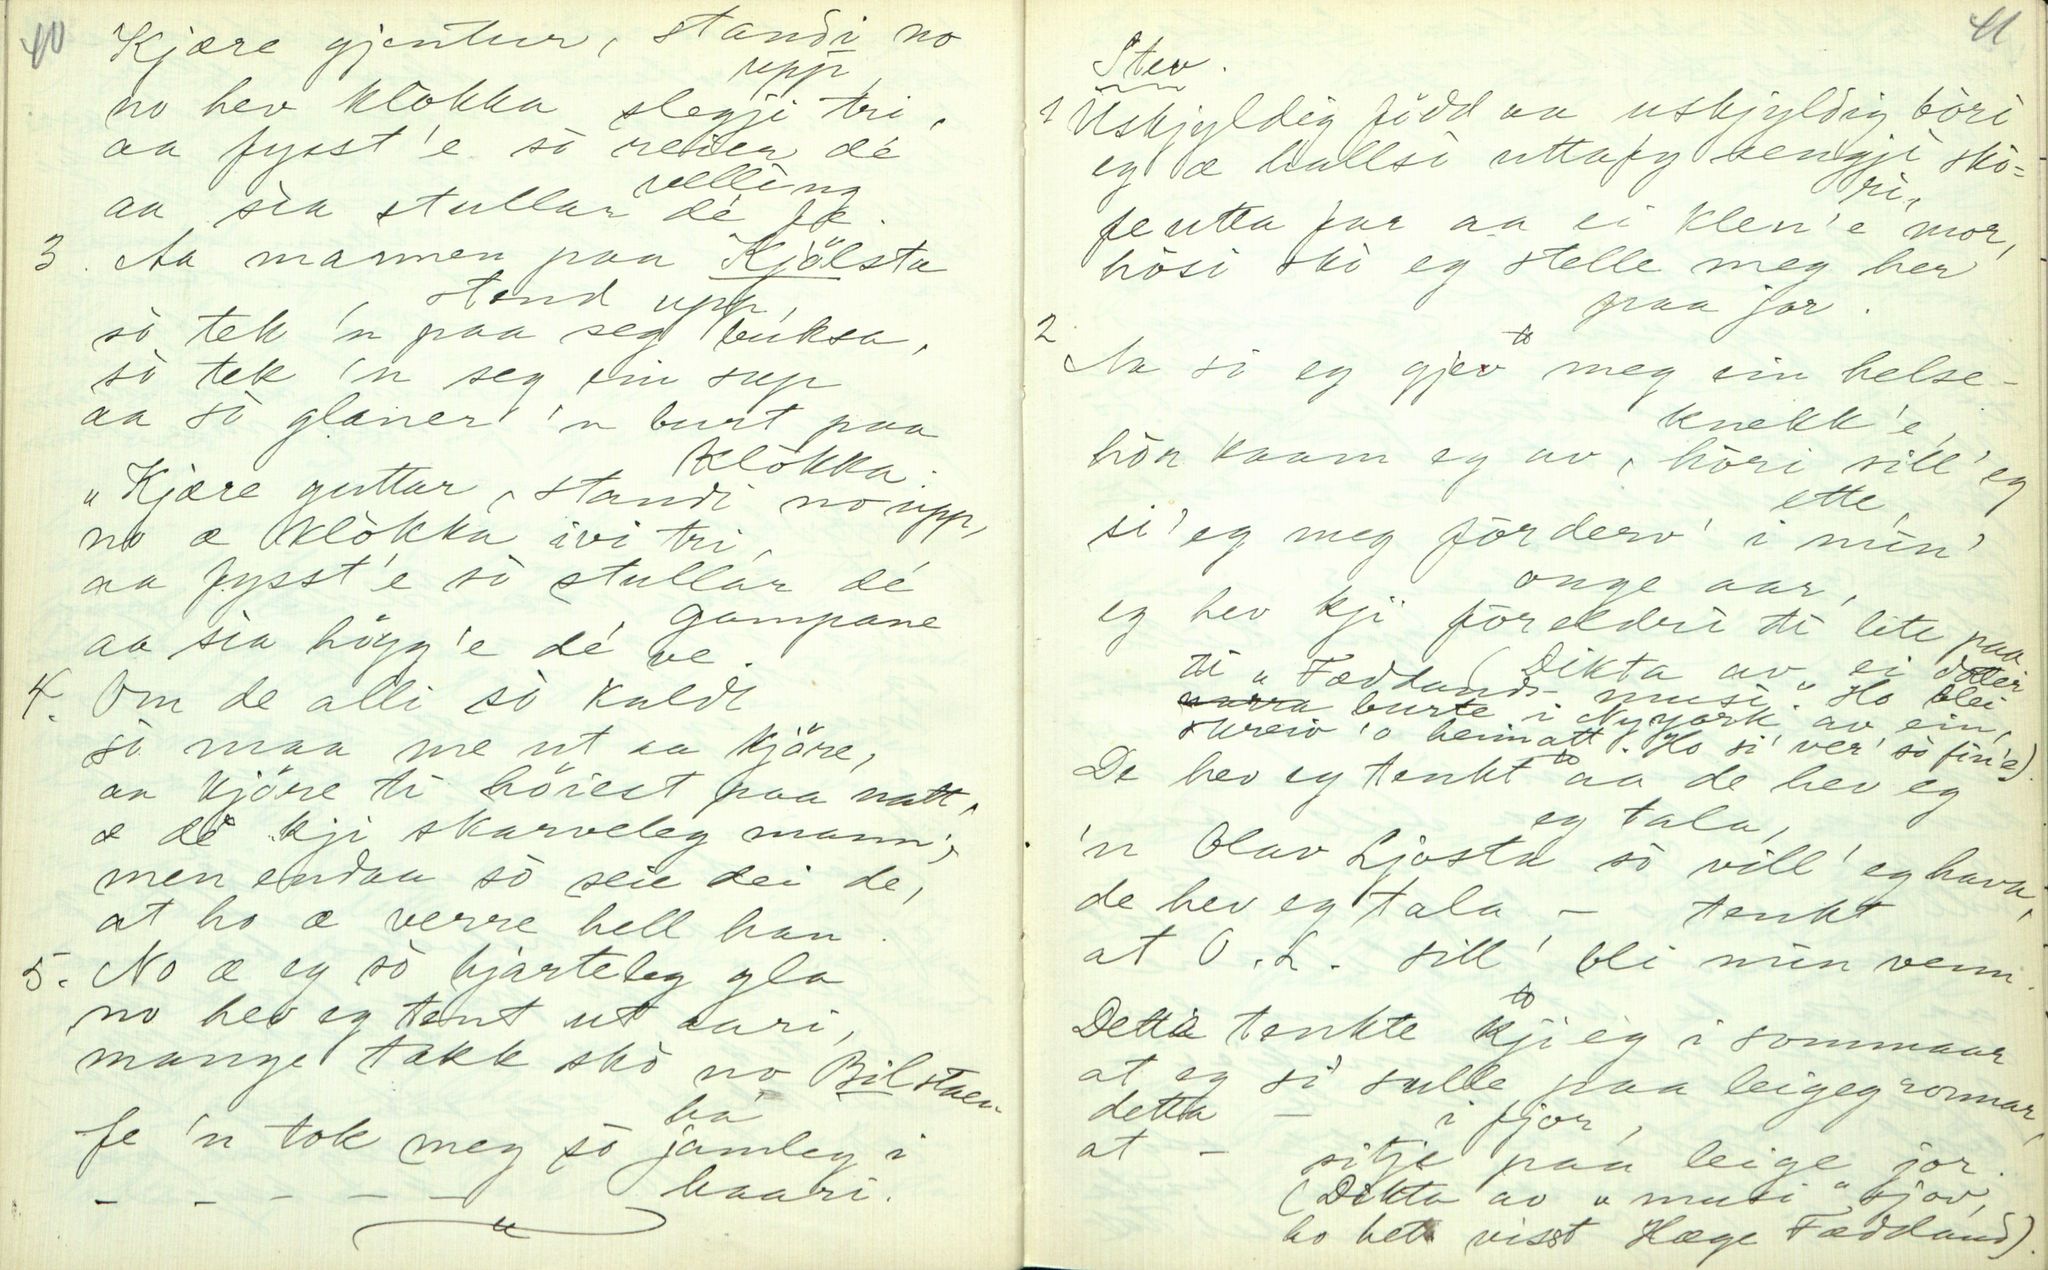 40
Kjære gjentur, standi no
upp,
no hev klòkka slegji tri,
aa fysst'e sò reier dé
velling
aa sia stullar dé fe.
3. Aa mannen paa Kjölsta
stend upp,
sò tek 'n paa seg buksa,
sò tek 'n seg ein sup
aa sò glaner 'n burt paa
klòkka.
"Kjære guttar, standi no upp,
no æ klòkka ivi tri,
aa fysst'e sò stullar dé
gampane
aa sia högg'e dé ve.
4. Om de alli sò kaldt
sò maa me ut aa kjöre,
aa kjöre ti höiest paa natt,
æ dé kji skarveleg mann',
men endaa sò seie dei de,
at ho æ verre hell han.
5. No æ eg sò hjarteleg gla
no hev eg tent ut aari,
mange takk skò no Bilstaen
ha
fe 'n tok meg sò jamleg i
haari.
– – – – –
41
Stev.
1 Uskjyldig född aa uskjyldig bòri
eg æ hallsò uttafy sengji skò=
ri,
fe utta far aa ei klen'e mor,
hòsi skò eg stelle meg her
paa jor.
2
Aa sò eg gjev meg ein helse-
knekk'e,
hòn kaam eg av, hòri sill' eg
ette,
si' eg meg fòrderv' i min'
onge aar,
eg hev kji fòreldri ti lite paa
(Dikta av ei dotter
ti "Fæddands-musi". Ho blei
narra burte i Nyyork av ein,
skreiv 'o heimatt. Ho si' ver' sò fin'e).
De hev eg tenkt aa de hev eg
eg tala,
'n Olav Ljosta sò vill' eg hava,
de hev eg tala – tenkt
at O. L. sill' bli min venn.
Detta tenkte kji eg i sommaar
at eg sò sulle paa leigegronnar,
detta – i fjor,
at – sitje paa leige jor.
(Dikta av "musi" sjov,
ho het visst Hæge Fæddand).